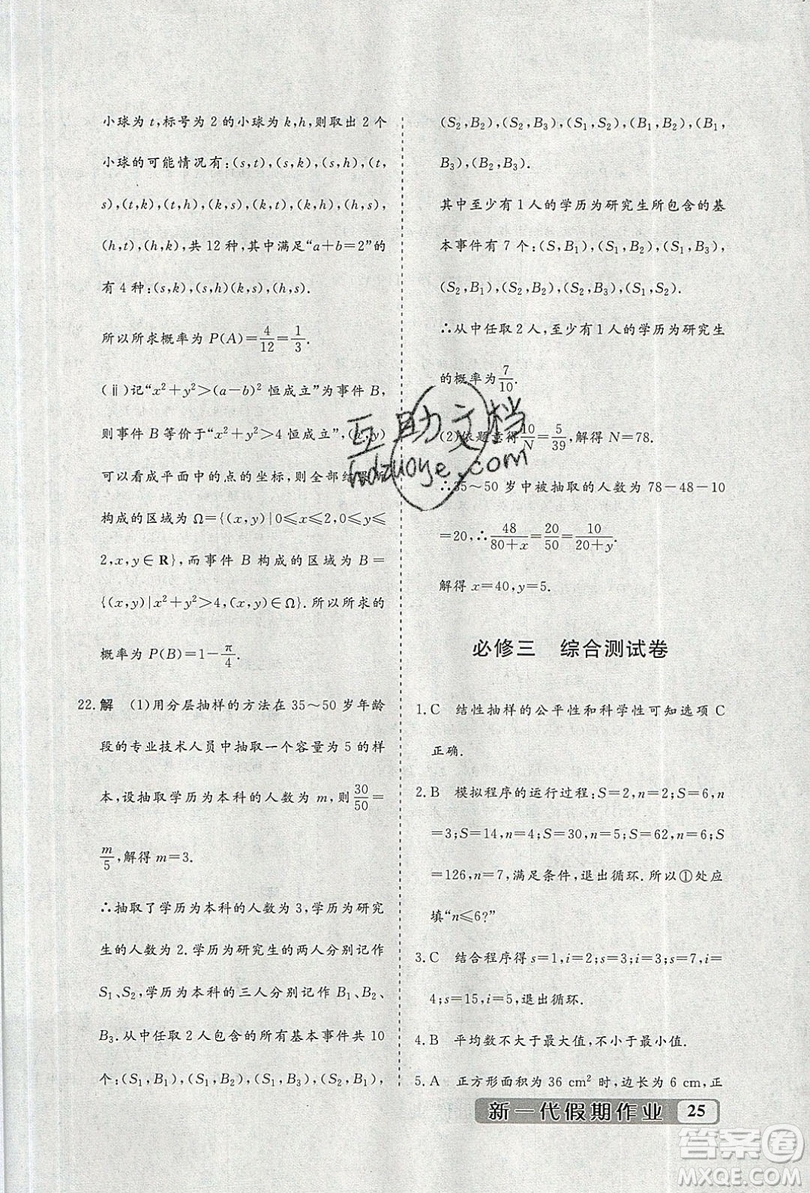 小球为 t,标号为 2 的小球为 k,h,则取出 2 个
小球的可能情况有:(s,t),(s,k),(s,h),(t,
s),(t,k),(t,h),(k,s),(k,t),(k,h),(h,s),
(h,t),(h,k),共 12 种,其中满足“a+b=2”的
有 4 种:(s,k),(s,h),(k,s),(h,s).
所以所求概率为 P(A)=4/12=1/3.
(ⅱ)记“x²+y²>(a-b)² 恒成立”为事件 B,
则事件 B 等价于“x²+y²>4 恒成立”,(x,y)
可以看成平面中的点的坐标,则全部结果所
构成的区域为 Ω={(x,y)|0≤x≤2,0≤y≤
2,x,y∈R},而事件 B 构成的区域为 B=
{(x,y)|x²+y²>4,(x,y)∈Ω}.所以所求的
概率为 P(B)=1-π/4.
22.解 (1)用分层抽样的方法在 35~50 岁年龄
段的专业技术人员中抽取一个容量为 5 的样
本,设抽取学历为本科的人数为 m,则30/50=
m/5,解得 m=3.
∴抽取了学历为本科的人数为 3,学历为研究
生的人数为 2.学历为研究生的两人分别记作
S₁、S₂,学历为本科的三人分别记作 B₁、B₂、
B₃.从中任取 2 人包含的所有基本事件共 10
个:(S₁,B₁),(S₁,B₂),(S₁,B₃),(S₂,B₁),
(S₂,B₂),(S₂,B₃),(S₁,S₂),(B₁,B₂),(B₁,
B₃),(B₂,B₃).
其中至少有 1 人的学历为研究生所包含的基
本事件有 7 个:(S,B₁),(S₁,B₂),(S₁,B₃),
(S₂,B₁),(S₂,B₂),(S₂,B₃),(S₁,S₂).
∴从中任取 2 人,至少有 1 人的学历为研究生
的概率为7/10.
(2)依题意得10/N=5/39,解得 N=78.
∴35~50 岁中被抽取的人数为 78-48-10
=20,∴48/(80+x)=20/50=10/(20+y).
解得 x=40,y=5.
必修三 综合测试卷
1.C 结性抽样的公平性和科学性可知选项 C
正确.
2.B 模拟程序的运行过程:S=2,n=2;S=6,n
=3;S=14,n=4;S=30,n=5;S=62,n=6;S=
126,n=7,满足条件,退出循环.所以①处应
填“n≤6?”
3.C 结合程序得 s=1,i=1;s=1,i=2;s=2,i=
4;s=4,i=5;退出循环.
4.B 平均数不大于最大值,不小于最小值.
5.A 正方形面积为 36 cm²,边长为 6 cm,正
新一代假期作业 25
互助文档
hdzuoye.com
答案圈
MXQE.COM